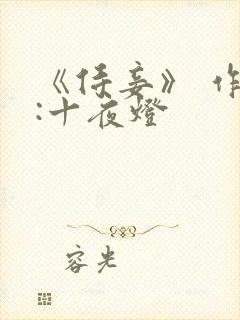 《侍妾》 作
:十夜燈
容光